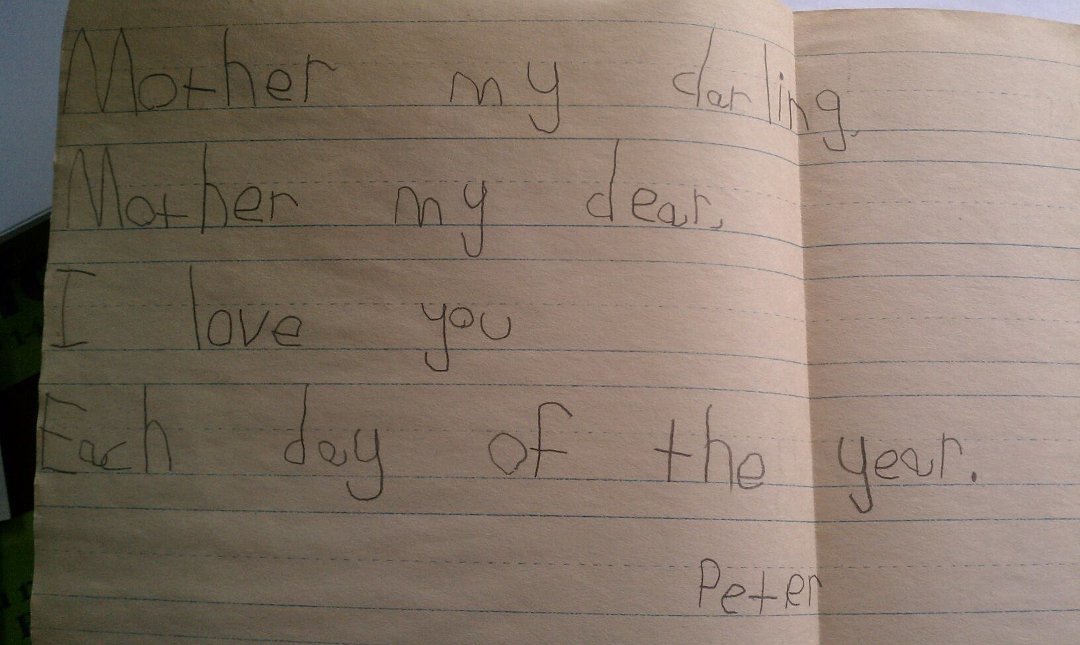 Mother my darling,
Mother my dear,
I love you
Each day of the year.
Peter